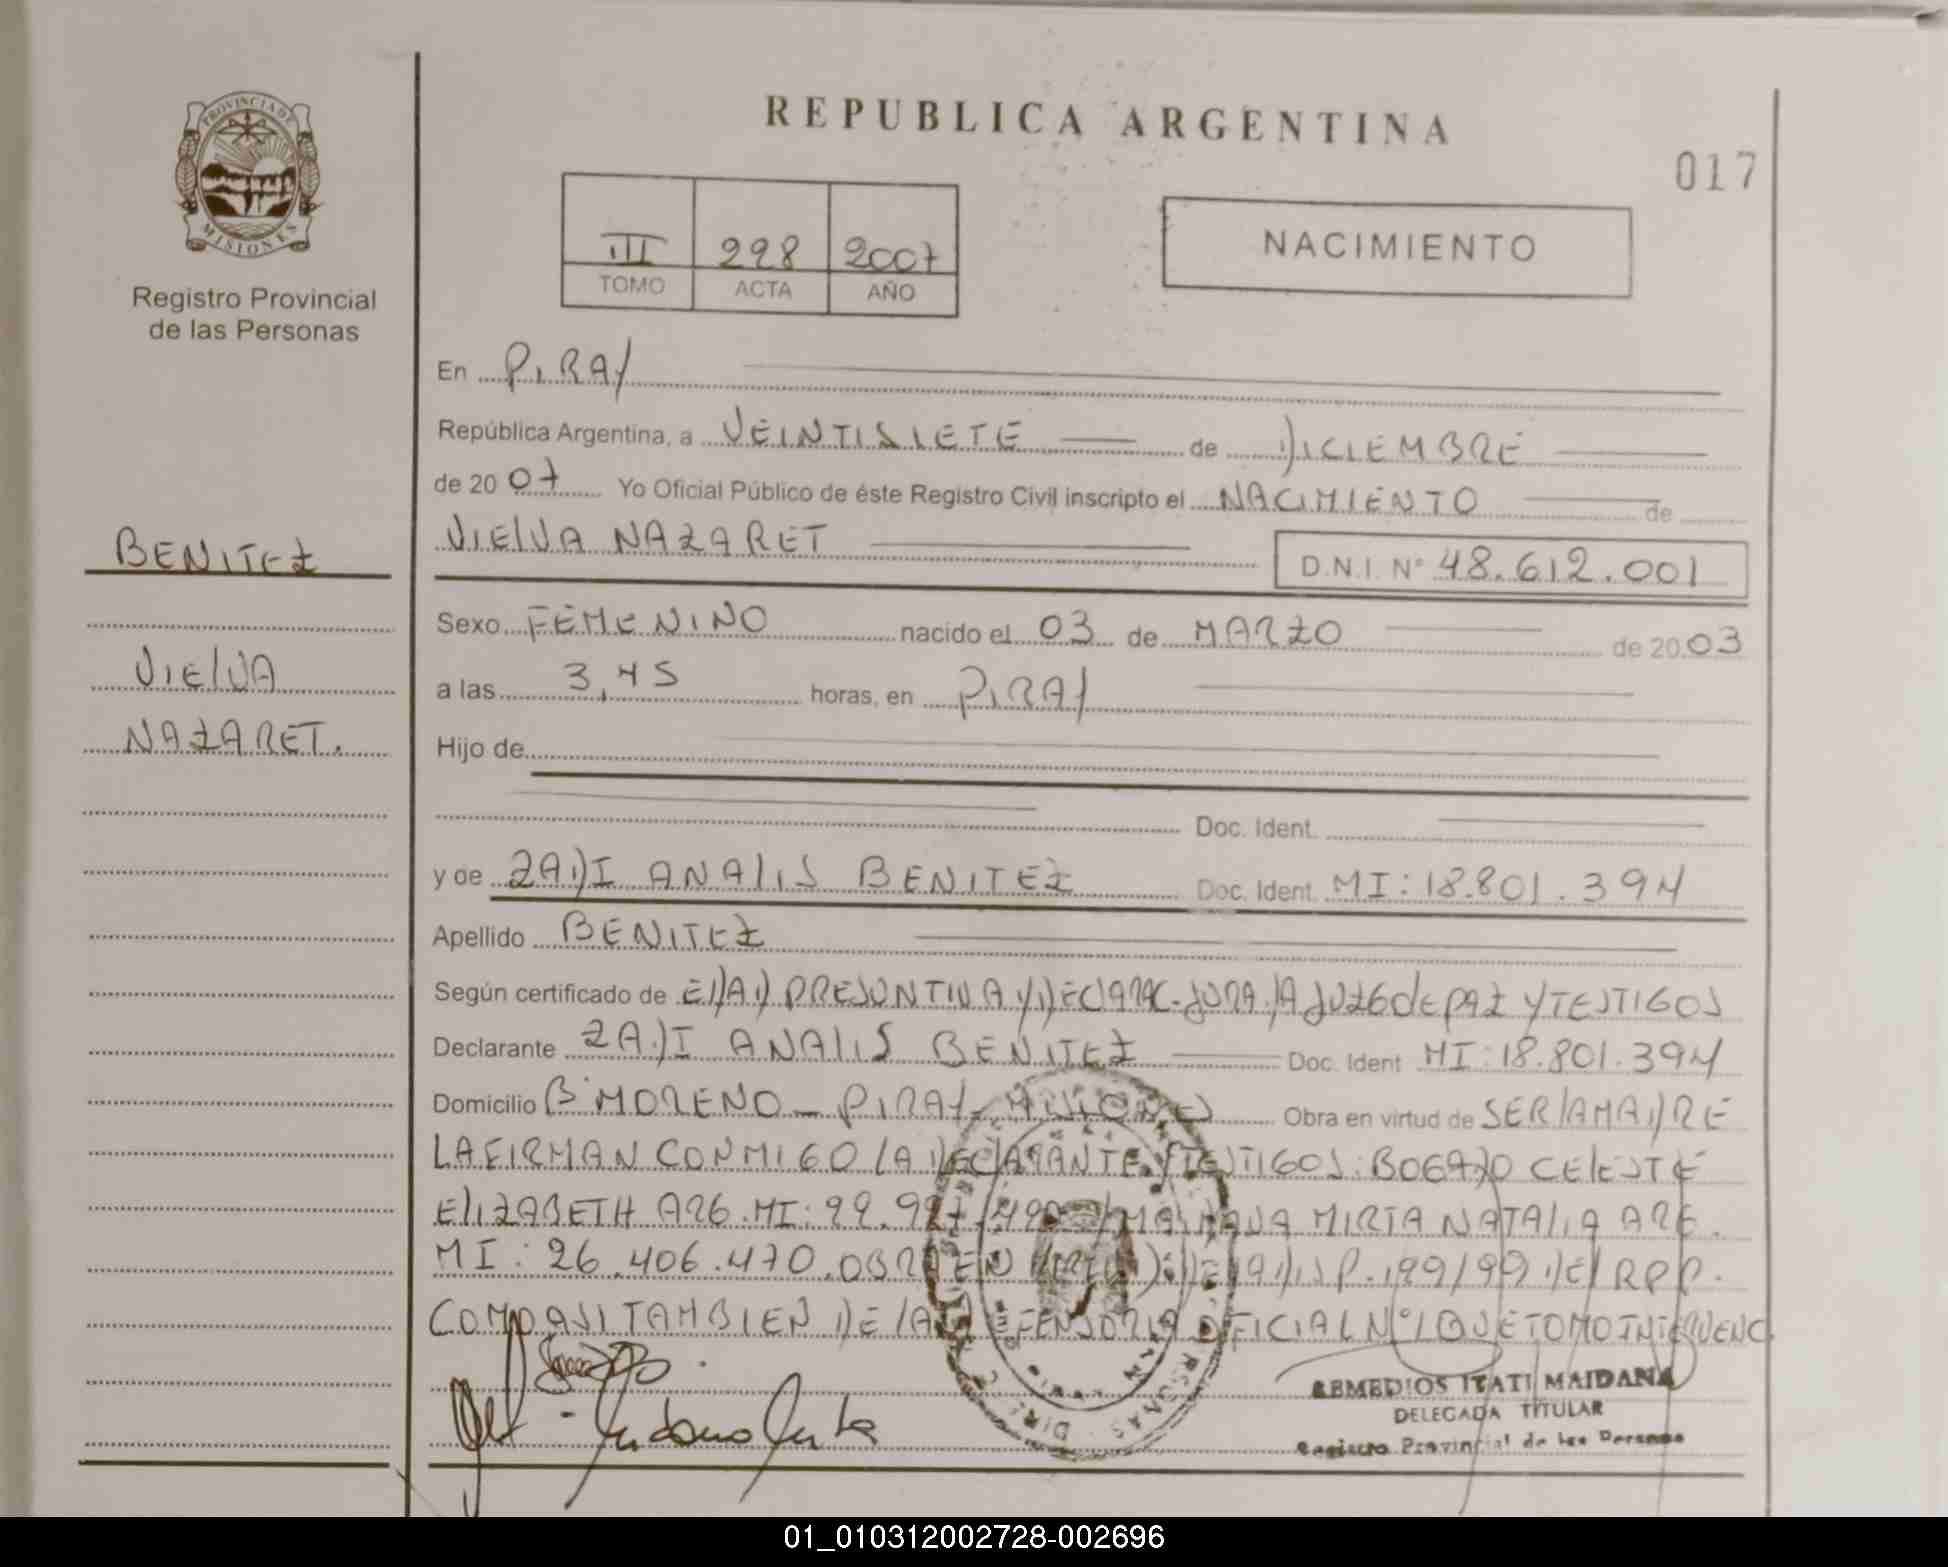 REPUBLICA ARGENTINA
017
PROVINCIA DE
MISIONES
Registro Provincial
de las Personas
III 228 2007
TOMO ACTA AÑO
NACIMIENTO
En PIRAY
República Argentina, a VEINTISIETE de DICIEMBRE
de 20 07 Yo Oficial Público de éste Registro Civil inscripto el NACIMIENTO de
VIELVA NAZARET
D.N.I. N° 48.612.001
BENITEZ
VIELVA
NAZARET.
Sexo FEMENINO nacido el 03 de MARZO de 20 03
a las 3,45 horas, en PIRAY
Hijo de
Doc. Ident.
y de ZADI ANALIS BENITEZ Doc. Ident. MI: 18.801.394
Apellido BENITEZ
Según certificado de EDAD PRESUNTIVA Y DECLARAC. JURA. LA JUZG de PAZ Y TESTIGOS
Declarante ZADI ANALIS BENITEZ Doc. Ident MI: 18.801.394
Domicilio B° MORENO - PIRAY - MISIONES Obra en virtud de SER LA MADRE
LA FIRMAN CONMIGO LA DECLARANTE Y TESTIGOS: CELESTE
ELIZABETH ARG. MI: MAIDANA MIRTA NATALIA ARG.
MI: 26.406.470. OBRA EN DE LA DISP. 199/99 DEL RPP.
COMO ASI TAMBIEN DE LA DEFENSORIA OFICIAL N° 1 QUE TOMO INTERVENC.
REMEDIOS ITATI MAIDANA
DELEGADA TITULAR
Registro Provincial de las Personas
01_010312002728-002696